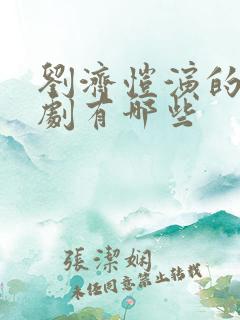 劉濟愷演的
劇有哪些
張潔嫻
未经同意禁止转载